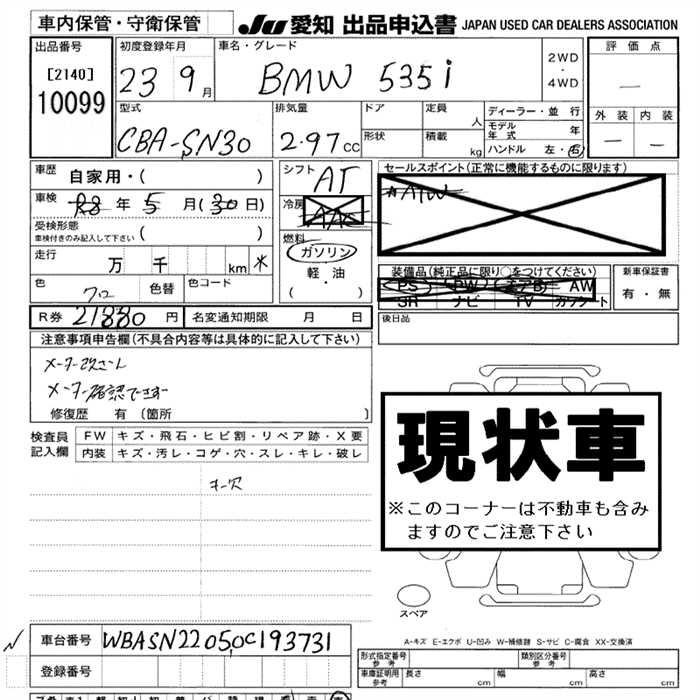 車内保管・守衛保管 JU 愛知 出品申込書 JAPAN USED CAR DEALERS ASSOCIATION
出品番号 初度登録年月 車名・グレード 評価点
[2140] 23 9月 BMW 535i 2WD・4WD
10099 型式 排気量 ドア 定員 人 ディーラー・並行 外装 内装
CBA-SN30 2.97CC 形状 積載 kg モデル年式 年
ハンドル 左・右
車歴 自家用・( ) シフト AT セールスポイント(正常に機能するものに限ります)
車検 R8年 5月(30日) 冷房 AAC AW
受検形態 ( )
車検付きのみ記入して下さい
走行 万 千 km * 燃料 ガソリン 軽・油 ( ・ )
装備品(純正品に限り○をつけてください) 新車保証書
PS PW エアB AW 有・無
SR ナビ TV カセット
色 クロ 色替 色コード
R券 21880円 名変通知期限 月 日 後日品
注意事項申告欄(不具合内容等は具体的に記入して下さい)
メーター改ざん
メーター確認できず
修復歴 有 (箇所 )
検査員記入欄 FW キズ・飛石・ヒビ割・リペア跡・X要
内装 キズ・汚レ・コゲ・穴・スレ・キレ・破レ
現状車
※このコーナーは不動車も含みますのでご注意下さい
スペア
A-キズ E-エクボ U-凹み W-補修跡 S-サビ C-腐食 XX-交換済
車台番号 WBASN22050C193731
登録番号
形式指定番号 参考 類別区分番号 参考
車庫証明用 参考 長さ cm 幅 cm 高さ cm